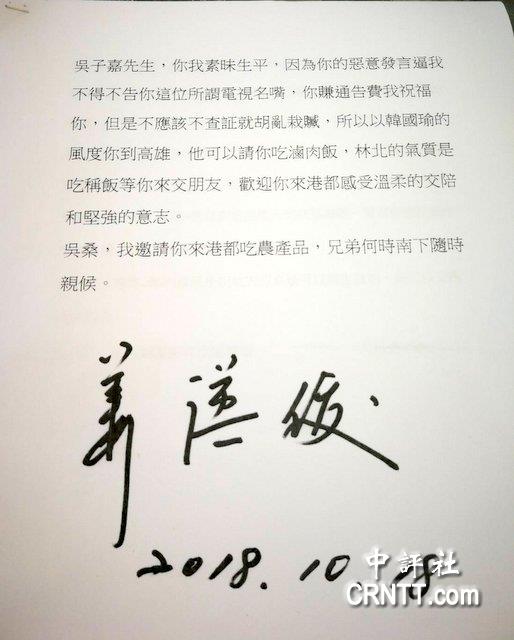 吳子嘉先生，你我素昧生平，因為你的惡意發言逼我
不得不告你這位所謂電視名嘴，你賺通告費我祝福
你，但是不應該不查証就胡亂栽贓，所以以韓國瑜的
風度你到高雄，他可以請你吃滷肉飯，林北的氣質是
吃稱飯等你來交朋友，歡迎你來港都感受溫柔的交陪
和堅強的意志。
吳桑，我邀請你來港都吃農產品，兄弟何時南下隨時
親候。
2018.10.28
中評社
CRNTT.com